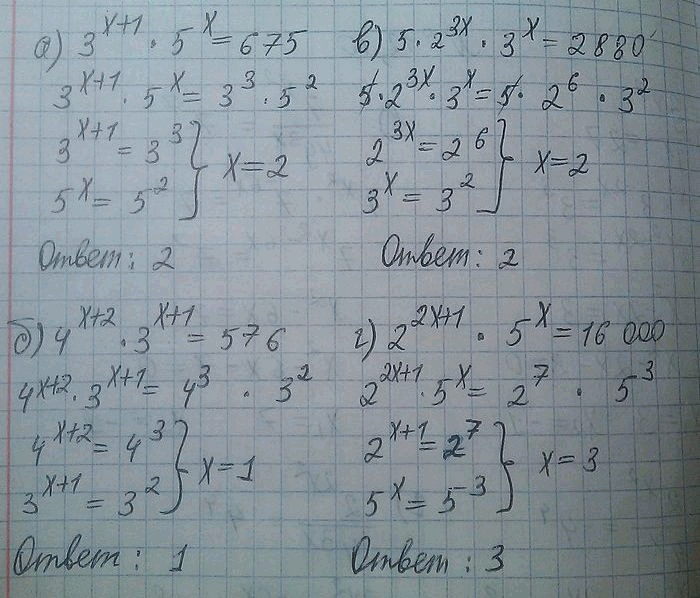 а) 3^(x+1) · 5^x = 675
3^(x+1) · 5^x = 3^3 · 5^2
3^(x+1) = 3^3
5^x = 5^2 } x = 2
Ответ: 2
в) 5 · 2^(3x) · 3^x = 2880
5 · 2^(3x) · 3^x = 5 · 2^6 · 3^2
2^(3x) = 2^6
3^x = 3^2 } x = 2
Ответ: 2
б) 4^(x+2) · 3^(x+1) = 576
4^(x+2) · 3^(x+1) = 4^3 · 3^2
4^(x+2) = 4^3
3^(x+1) = 3^2 } x = 1
Ответ: 1
г) 2^(2x+1) · 5^x = 16 000
2^(2x+1) · 5^x = 2^7 · 5^3
2^(x+1) = 2^7
5^x = 5^3 } x = 3
Ответ: 3